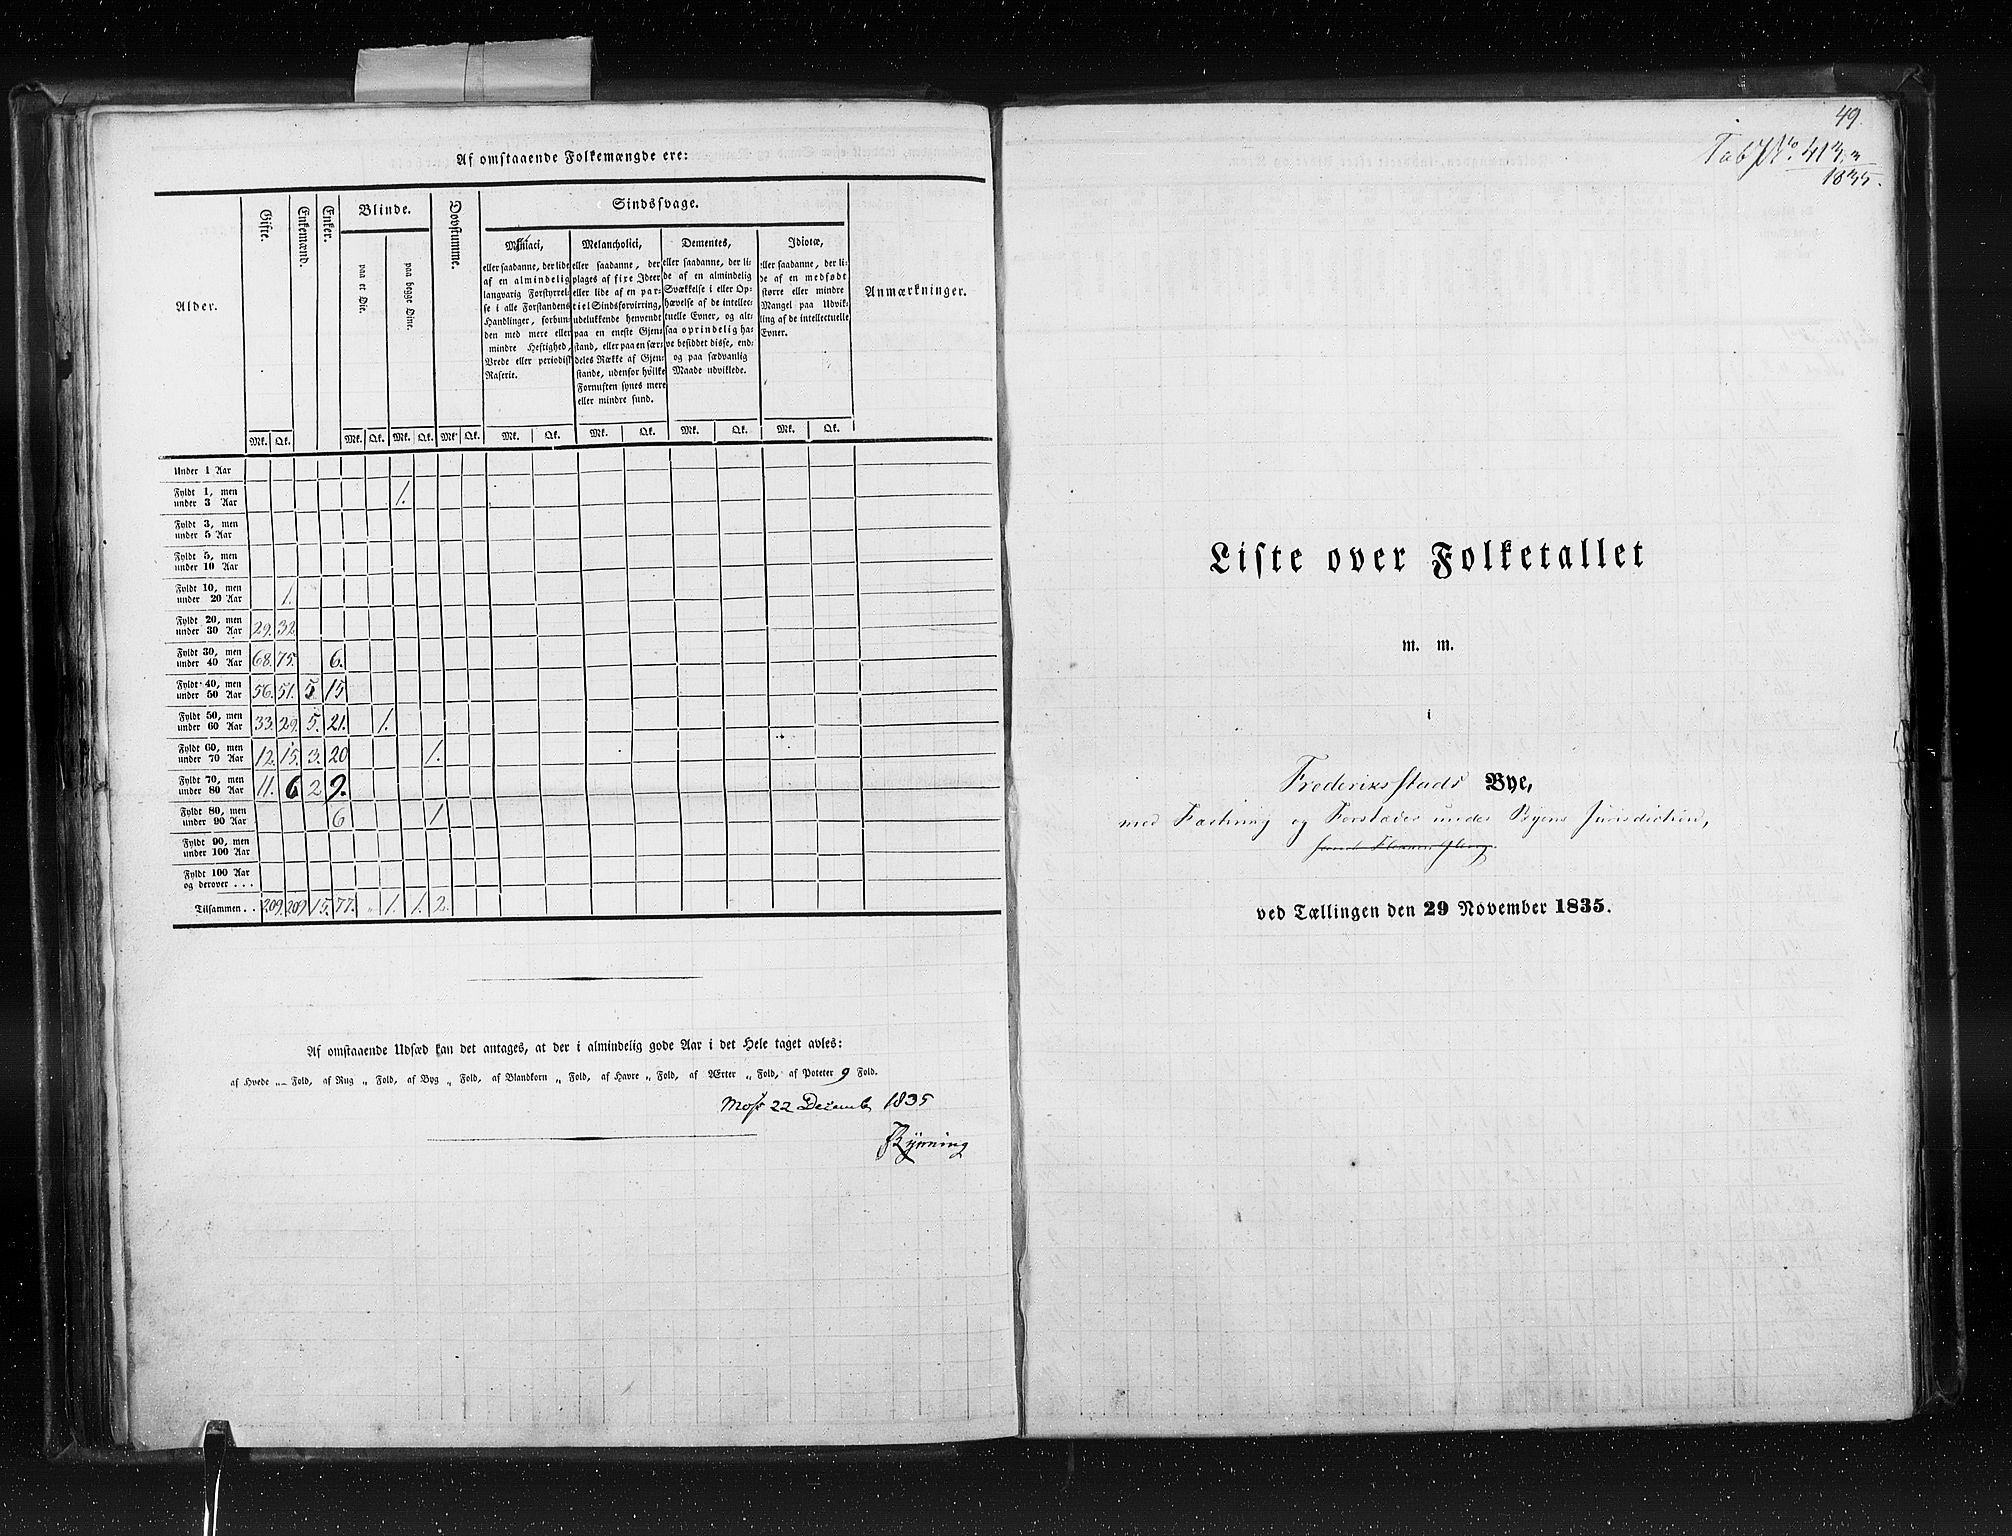 Af omstaaende Folkemængde ere:
Alder.
Gifte.
Enkemænd.
Enker.
Blinde.
paa et Øie.
paa begge Øine.
Døvstumme.
Sindssvage.
Maniaci,
eller saadanne, der lide
af en almindelig
langvarig Forstyrrel-
se i alle Forstandens
Handlinger, forbun-
den med mere eller
mindre Heftighed,
Vrede eller periodisk
Raserie.
Melancholici,
eller saadanne, der
plages af fixe Ideer
eller lide af en par-
tiel Sindsforvirring,
udelukkende henvendt
paa en eneste Gjen-
stand, eller paa en sær-
deles Række af Gjen-
stande, udenfor hvilke
Fornuften synes mere
eller mindre sund.
Dementes,
eller saadanne, der li-
de af en almindelig
Svækkelse i eller Op-
hævelse af de intellec-
tuelle Evner, og alt-
saa oprindelig ha-
ve besiddet disse, end-
og paa sædvanlig
Maade udviklede.
Idiotæ,
eller saadanne, der li-
de af en medfødt
større eller mindre
Mangel paa Udvik-
ling af de intellectuelle
Evner.
Anmærkninger.
Mk. Qk. Mk. Qk. Mk. Qk. Mk. Qk. Mk. Qk. Mk. Qk. Mk. Qk. Mk. Qk.
Under 1 Aar
Fyldt 1, men
under 3 Aar 1.
Fyldt 3, men
under 5 Aar
Fyldt 5, men
under 10 Aar
Fyldt 10, men
under 20 Aar 1.
Fyldt 20, men
under 30 Aar 29. 32
Fyldt 30, men
under 40 Aar 68. 75. 6.
Fyldt 40, men
under 50 Aar 56. 51. 5 15
Fyldt 50, men
under 60 Aar 33. 29. 5. 21. 1.
Fyldt 60, men
under 70 Aar 12. 15. 3. 20 1.
Fyldt 70, men
under 80 Aar 11. 6 2 9.
Fyldt 80, men
under 90 Aar 6 1
Fyldt 90, men
under 100 Aar
Fyldt 100 Aar
og derover . . .
Tilsammen . . 209. 209 15. 77. „ 1. 1. 2.
Af omstaaende Udsæd kan det antages, at der i almindelig gode Aar i det Hele taget avles:
af Hvede „ Fold, af Rug „ Fold, af Byg „ Fold, af Blandkorn „ Fold, af Havre „ Fold, af Ærter „ Fold, af Poteter 9 Fold.
Moss 22 Decemb 1835
Rynning
49.
Liste over Folketallet
m. m.
i
Frederiksstads Bye,
med Fæstning og Forstæder under Byens Jurisdiction,
ved Tællingen den 29 November 1835.